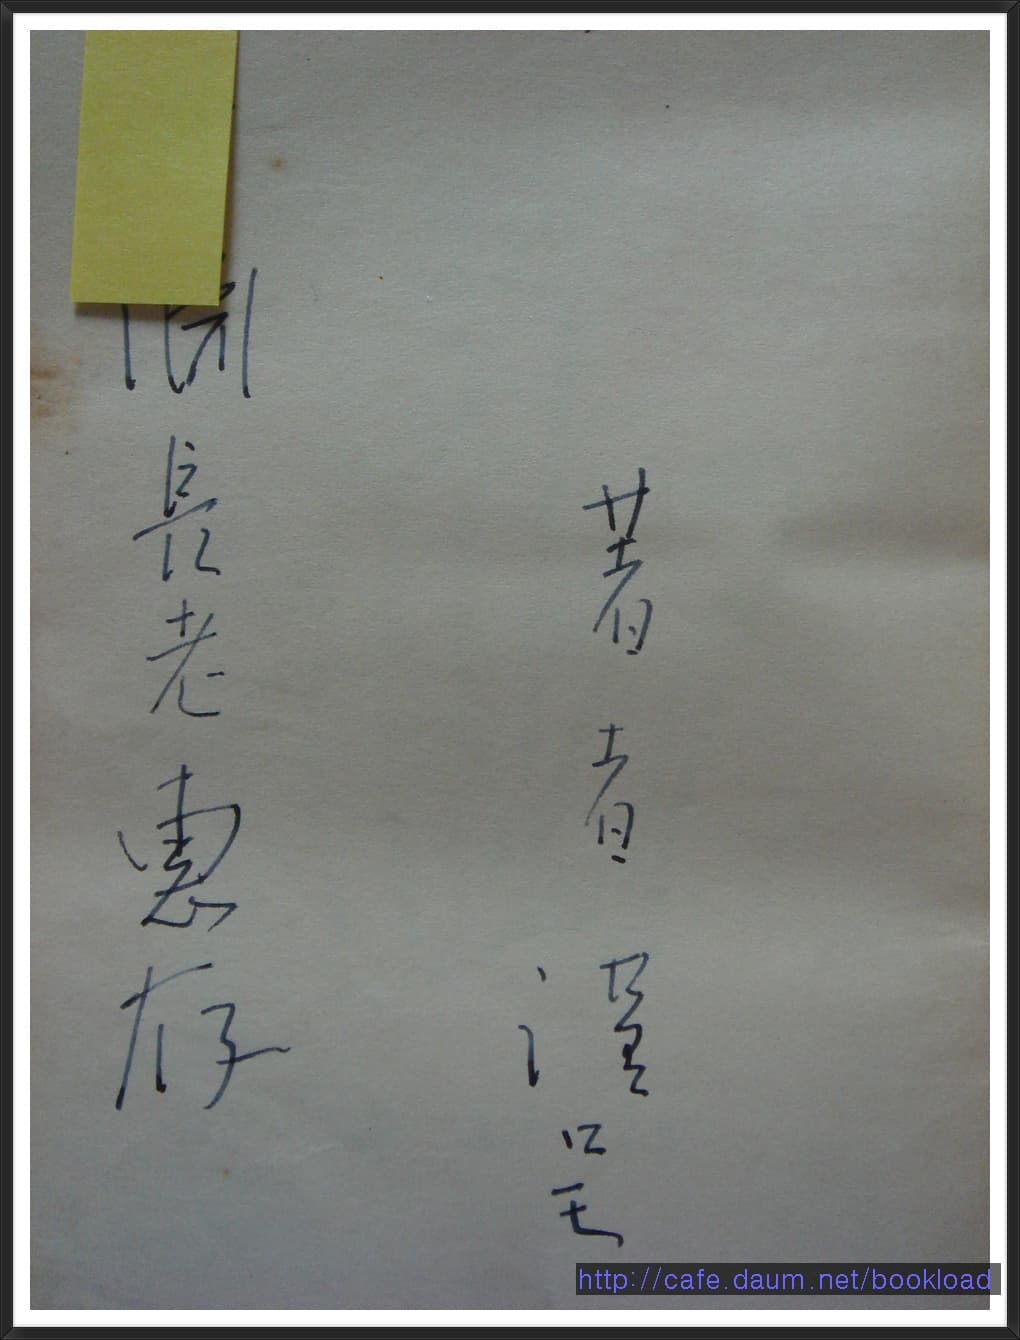 長老惠存
著者謹呈
http://cafe.daum.net/bookload